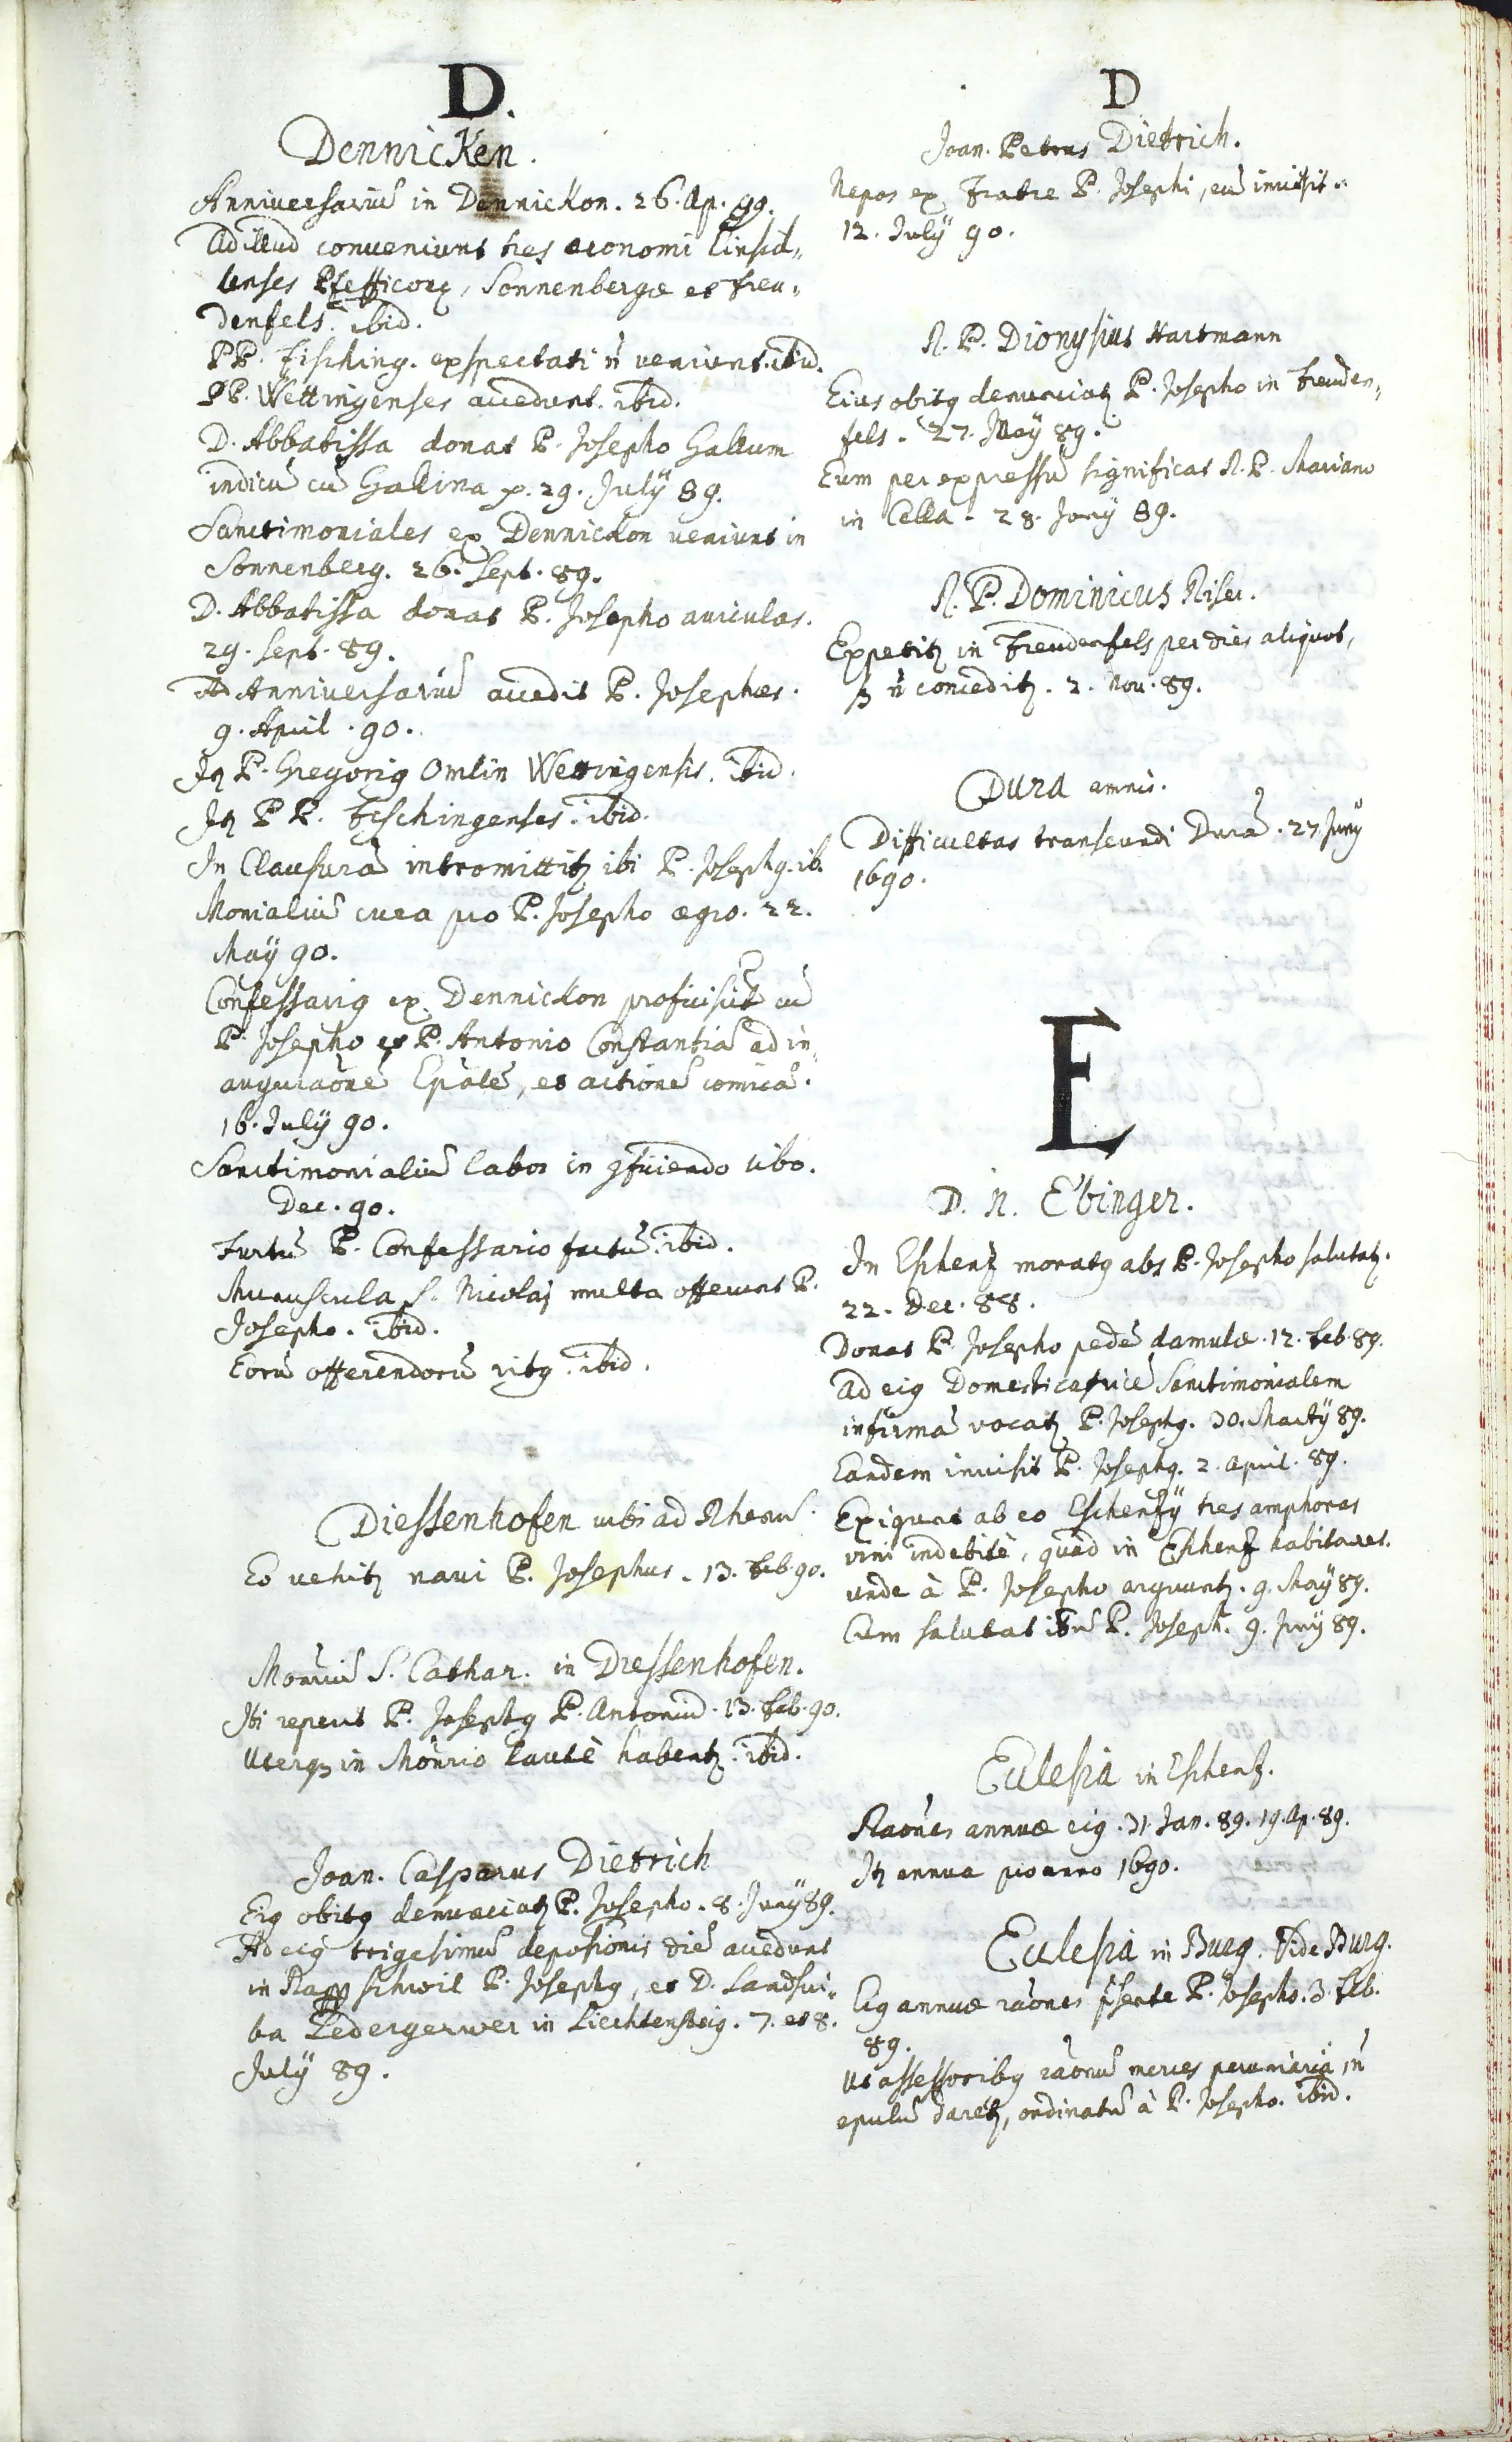 D.
Dennicken.
Anniversariũ in Dennickon. 26. Ap. 89.
Ad illud conveniunt tres œconomi Einsid„
lenses Pfefficonꝫ, Sonnenbergæ et freu„
denfels. ibid.
PP. Fisching. exspectati ñ veniunt. ibid.
PP. Wettingenses accedunt. ibid.
D. Abbatissa donat P. Josepho Gallum
indicũ cũ Gallina p. 29. Julÿ 89.
Sanctimoniales ex Dennickon veniunt in
Sonnenberg. 26. Sept. 89.
D. Abbatissa donat P. Josepho auiculas.
29. Sept. 89.
Ad Anniversariũ accedit P. Josephus.
9. April. 90.
Itꝫ P. Gregoriꝰ Omlin Wettingensis. ibid.
Itꝫ PP. Fischingenses. ibid.
In Clausurã intromittitꝫ ibi P. Josephꝰ. ib.
Monialiũ cura pro P. Josepho ægro. 22.
Maÿ 90.
Confessariꝰ ex Dennickon proficisit̃ cũ
P. Josepho et P. Antonio Constantiã ad in„
auguraõnẽ Ep̃alẽ, et actionẽ comicã.
16. Julÿ 90.
Sanctimonialiũ labor in ꝯficiendo cibo.
Dec. 90.
Furtũ P. Confessario factũ. ibid.
Munuscula S. Nicolaj multa offerunt P.
Josepho. ibid.
Eorũ offerendorũ ritꝰ. ibid.
Diessenhofen urbs ad Rhenũ.
Eo vehitꝫ navi P. Josephus. 13. Feb. 90.
Mõriũ S. Cathar. in Diessenhofen.
Ibi reperit P. Josephꝰ P. Antoniũ. 13. Feb. 90.
Uterqꝫ in Mõnrio lautè habentꝫ. ibid.
Joan. Casparus Dietrich
Eiꝰ obitꝰ denunciatꝫ P. Josepho. 8. Junÿ 89.
Ad eiꝰ trigesimũ depositionis diẽ accedunt
in Rappschwil P. Josephꝰ, et D. Landschri„
ba Ledergerwer in Liechtensteig. 7. et 8.
Julÿ 89.
D
Joan. Petrus Dietrich.
Nepos ex fratre P. Josephi, eũ invisit.
12. Julÿ 90.
R. P. Dionysius Hartmann
Eius obitꝰ denunciatꝫ P. Josepho in freuden„
fels. 27. Maÿ 89.
Eum per expressũ significat R. P. Mariano
in Cella. 28. Junÿ 89.
R. P. Dominicus Riser.
Expetitꝫ in freudenfels per dies aliquot,
sꝫ ñ conceditꝫ. 2. Nov. 89.
Dura amnis.
Difficultas transeundi Durã. 27. Junÿ
1690.
E
D. N. Ebinger.
In Eschenz moratꝰ abs P. Josepho salutatꝫ.
22. Dec. 88.
Donat P. Josepho pedẽ damulæ. 12. Feb. 89.
Ad eiꝰ Domesticatricẽ Sanctimonialem
infirmã vocatꝫ P. Josephꝰ. 30. Martÿ 89.
Eandem invisit P. Josephꝰ. 2. April. 89.
Exigunt ab eo Eschenzÿ tres amphoras
vini indebitè, quod in Eschenz habitaret.
unde à P. Josepho arguuntꝫ. 9. Maÿ 89.
Eum salutat iterũ P. Joseph. 9. Junÿ 89.
Ecclesia in Eschenz.
Raõnes annuæ eiꝰ. 31. Jan. 89. 19. Ap. 89.
Itꝫ annua pro anno 1690.
Ecclesia in Burg. Vide Burg.
Eiꝰ annuæ raõnes p̃sente P. Josepho. 3. Feb.
89.
Ut assessoribꝰ raõnũ merces pecuniaria, ñ
epulũ daretꝫ, ordinatũ à P. Josepho. ibid.